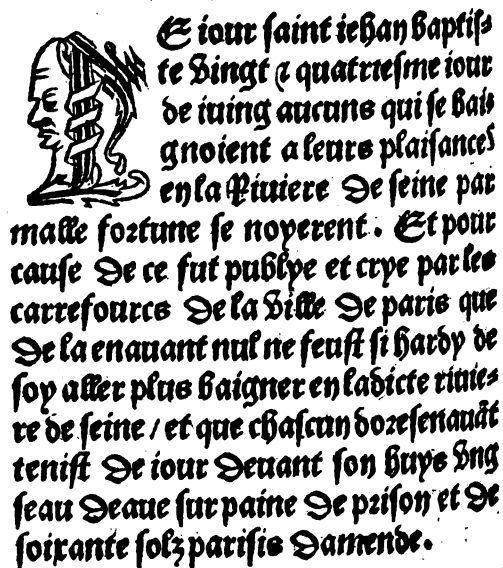 LE iour saint iehan baptis-
te vingt ⁊ quatriesme iour
de iuing aucuns qui se bai-
gnoient a leurs plaisances
en la Riuiere De seine par
malle fortune se noyerent. Et pour
cause De ce fut publye et crye par les
carrefources De la Ville De paris que
De la enauant nul ne feust si hardy de
soy aller plus baigner en ladicte riuie-
re de seine / et que chascun doresenauāt
tenist De iour Deuant son huys vng
seau Deaue sur paine De prison et De
soixante solz parisis Damende.